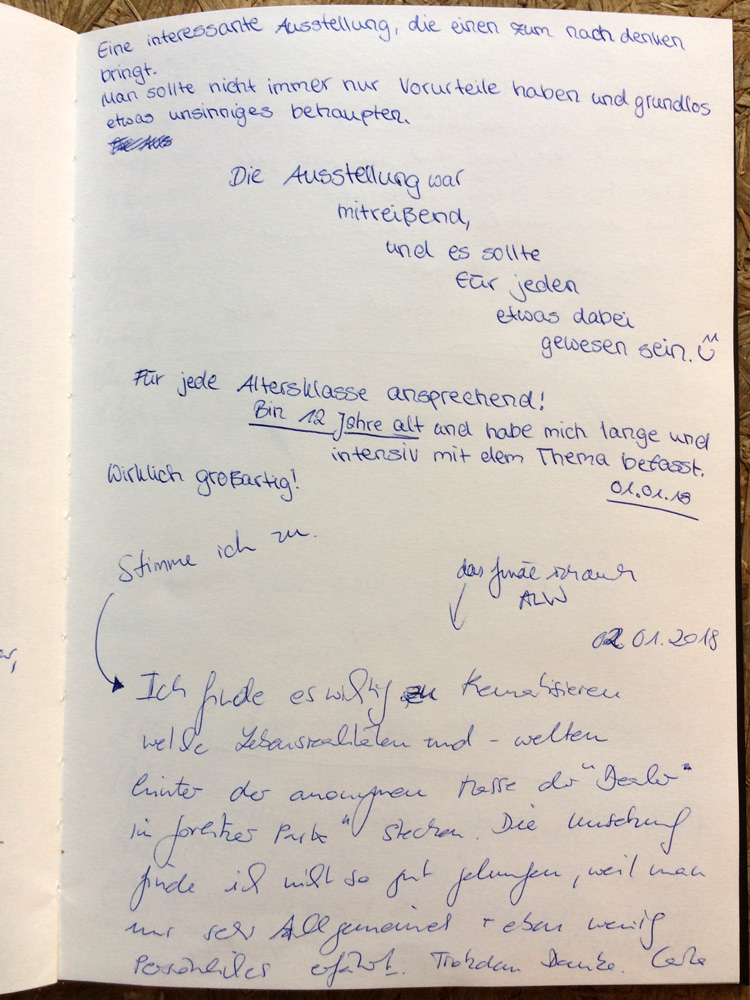 Eine interessante Ausstellung, die einen zum nach denken
bringt.
Man sollte nicht immer nur Vorurteile haben und grundlos
etwas unsinniges behaupten.
Die Ausstellung war
mitreißend,
und es sollte
für jeden
etwas dabei
gewesen sein.
Für jede Altersklasse ansprechend!
Bin 12 Jahre alt und habe mich lange und
intensiv mit dem Thema befasst.
Wirklich großartig!
01.01.18
Stimme ich zu.
das finde ich auch
02.01.2018
Ich finde es wichtig zu thematisieren
welche Lebensrealitäten und -welten
hinter der anonymen Masse der "Dealer"
im Görlitzer Park" stecken. Die Umsetzung
finde ich nicht so gut gelungen, weil man
nur sehr Allgemeines + eben wenig
Persönliches erfährt. Trotzdem Danke.